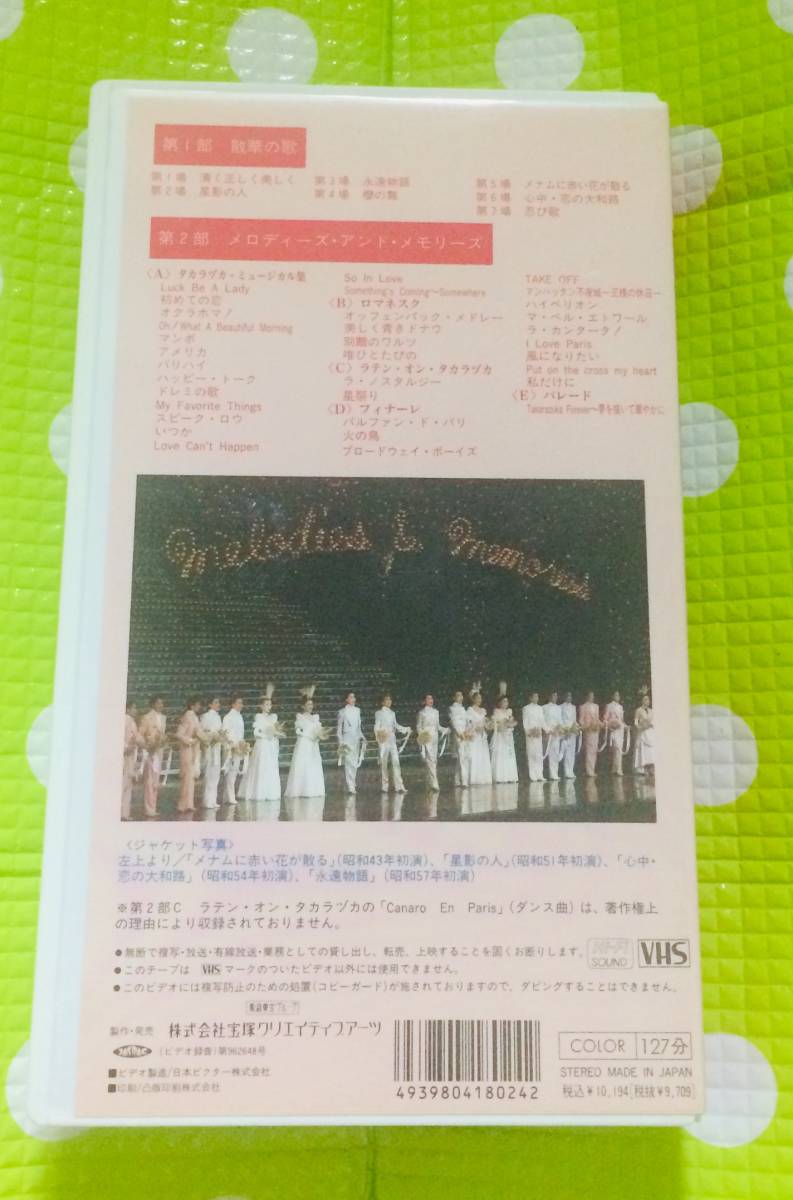 第1部 散華の歌
第1場 清く正しく美しく
第2場 星影の人
第3場 永遠物語
第4場 櫻の舞
第5場 メナムに赤い花が散る
第6場 心中・恋の大和路
第7場 忍び歌
第2部 メロディーズ・アンド・メモリーズ
〈A〉タカラヅカ・ミュージカル集
Luck Be A Lady
初めての恋
オクラホマ!
Oh! What A Beautiful Morning
マンボ
アメリカ
バリハイ
ハッピー・トーク
ドレミの歌
My Favorite Things
スピーク・ロウ
いつか
Love Can't Happen
So In Love
Something's Coming〜Somewhere
〈B〉ロマネスク
オッフェンバック・メドレー
美しく青きドナウ
別離のワルツ
唯ひとたびの
〈C〉ラテン・オン・タカラヅカ
ラ・ノスタルジー
星祭り
〈D〉フィナーレ
パルファン・ド・パリ
火の鳥
ブロードウェイ・ボーイズ
TAKE OFF
マンハッタン不夜城〜王様の休日〜
ハイペリオン
マ・ベル・エトワール
ラ・カンタータ!
I Love Paris
風になりたい
Put on the cross my heart
私だけに
〈E〉パレード
Takarazuka Forever〜夢を描いて華やかに
Melodies & Memories
〈ジャケット写真〉
左上より/「メナムに赤い花が散る」(昭和43年初演)、「星影の人」(昭和51年初演)、「心中・
恋の大和路」(昭和54年初演)、「永遠物語」(昭和57年初演)
※第2部C ラテン・オン・タカラヅカの「Canaro En Paris」(ダンス曲)は、著作権上
の理由により収録されておりません。
●無断で複写・放送・有線放送・業務としての貸し出し、転売、上映することを固くお断りします。
●このテープは VHS マークのついたビデオ以外には使用できません。
●このビデオには複写防止のための処置(コピーガード)が施されておりますので、ダビングすることはできません。
Hi-Fi
SOUND
VHS
阪急東宝グループ
製作・発売 株式会社宝塚クリエイティブアーツ
(ビデオ録音)第962648号
■ビデオ製造/日本ビクター株式会社
■印刷/凸版印刷株式会社
4939804180242
COLOR 127分
STEREO MADE IN JAPAN
税込¥10,194[税抜¥9,709]